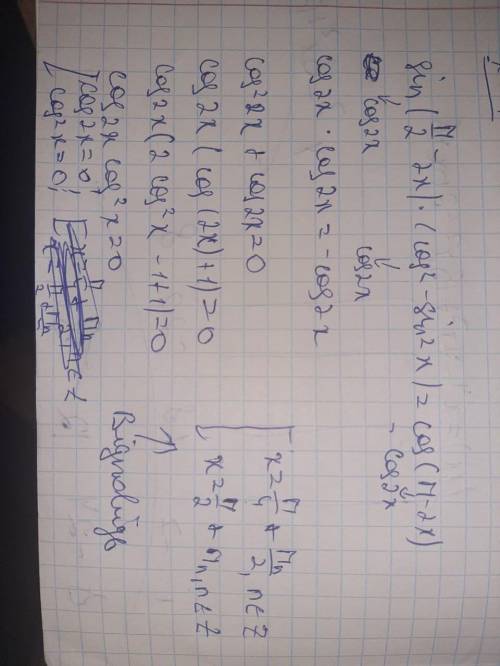 sin(π/2 - 2x)·(cos² - sin²x) = cos(π - 2x)
cos2x cos2x -cos2x
cos2x · cos2x = -cos2x
cos²2x + cos2x = 0
cos2x(cos(2x)+1) = 0
cos2x(2cos²x - 1+1) = 0
cos2x cos²x = 0
[cos2x = 0;
cos²x = 0;
[x = π/4 + πn/2, n∈Z
x = π/2 + πn, n∈Z
↑
Відповідь